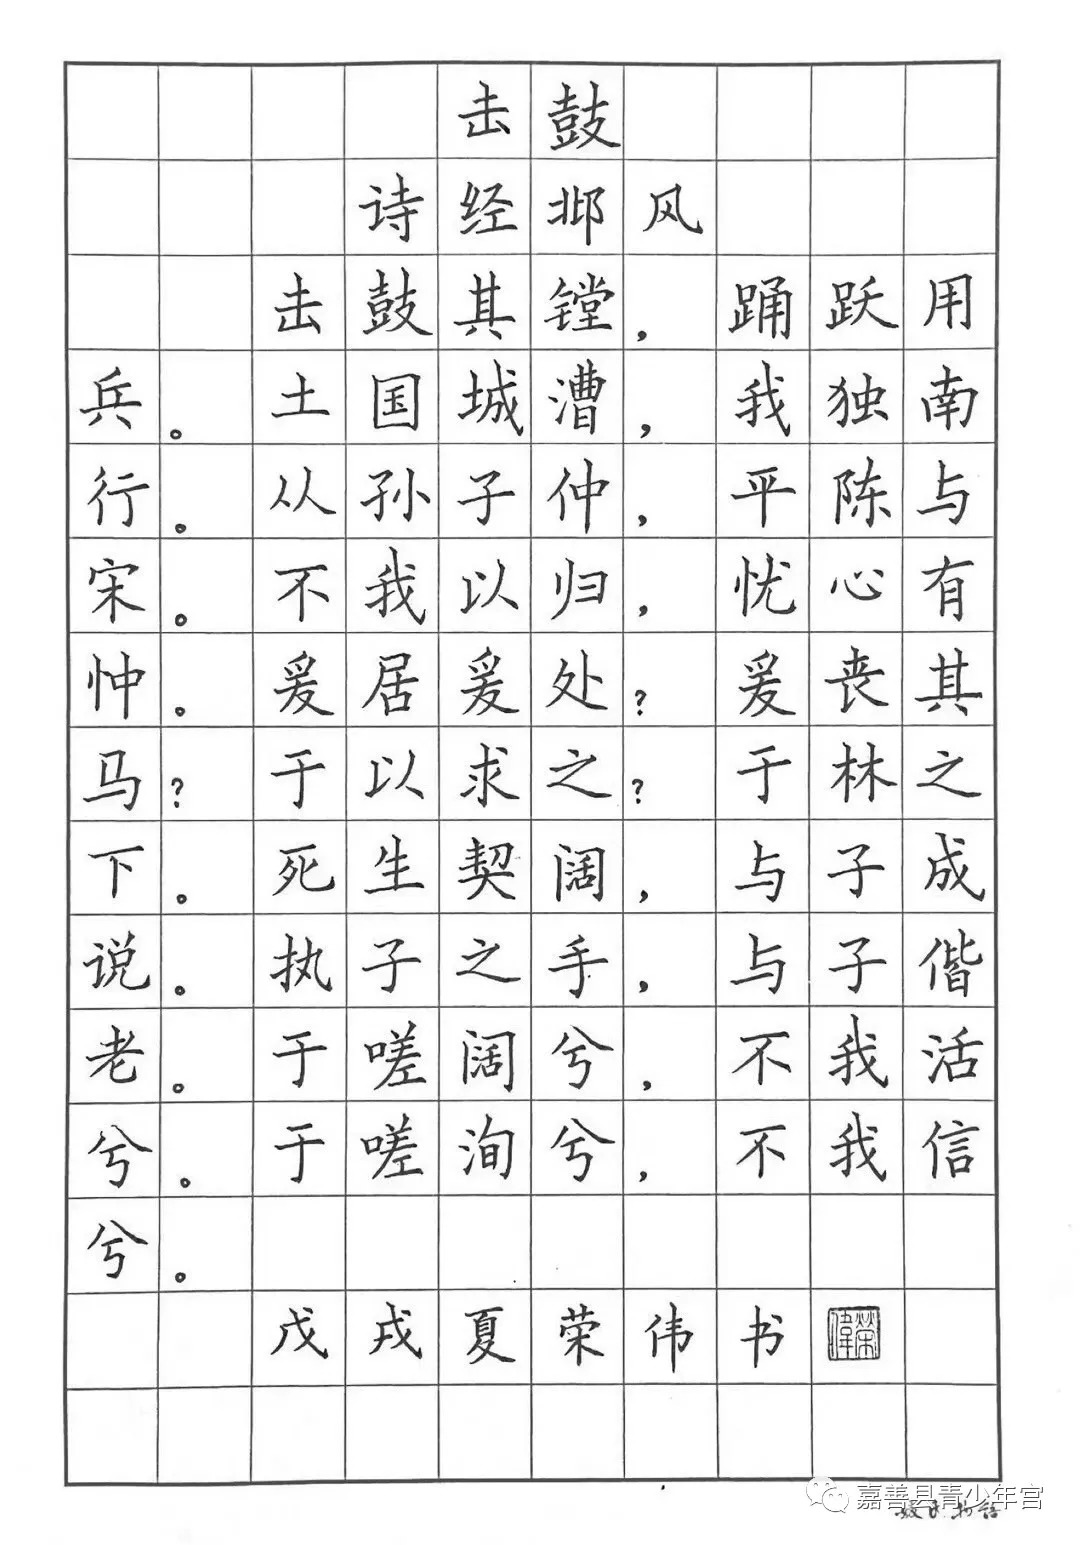 击鼓
诗经邶风
击鼓其镗，踊跃用
兵。土国城漕，我独南
行。从孙子仲，平陈与
宋。不我以归，忧心有
忡。爰居爰处？爰丧其
马？于以求之？于林之
下。死生契阔，与子成
说。执子之手，与子偕
老。于嗟阔兮，不我活
兮。于嗟洵兮，不我信
兮。
戊戌夏荣伟书
嘉善县青少年宫